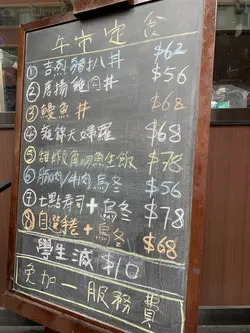 午市定食
① 吉烈豬扒丼 $62
② 唐揚雞丼 $56
③ 鰻魚丼 $68
④ 雜錦天婦羅 $68
⑤ 魚生飯 $78
⑥ 豚肉/牛肉烏冬 $56
⑦ 七點寿司+烏冬 $78
⑧ 自選手卷+烏冬 $68
學生減 $10
免加一服務費